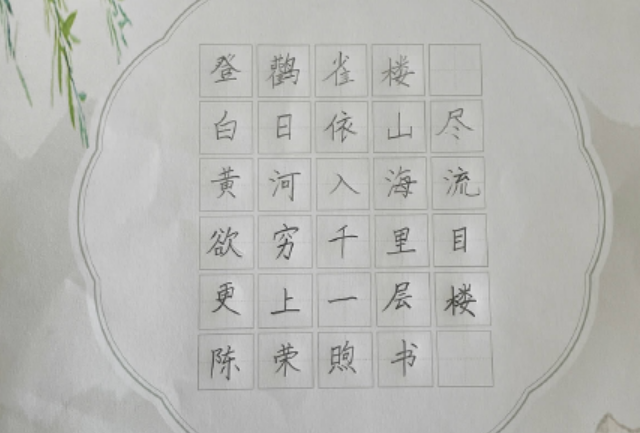 登鹳雀楼
白日依山尽
黄河入海流
欲穷千里目
更上一层楼
陈荣煦书